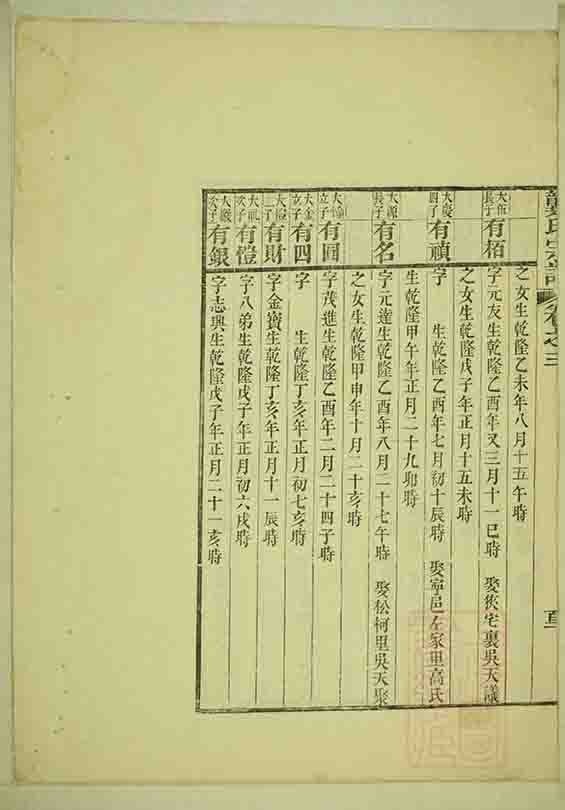 氏宗譜 卷之三
之女生乾隆乙未年八月十五午時
大伍長子 有栢 字元友生乾隆乙酉年又三月十一巳時 娶筱宅裏吳天議
之女生乾隆戊子年正月十五未時
大慶四子 有禎 字 生乾隆乙酉年七月初十辰時 娶寧邑左家里高氏
生乾隆甲午年正月二十九卯時
大源長子 有名 字元達生乾隆乙酉年八月二十七午時 娶松柯里吳天聚
之女生乾隆甲申年十月二十亥時
立子 有囘 字茂進生乾隆乙酉年二月二十四子時
大金立子 有四 字 生乾隆丁亥年正月初七亥時
二子 有財 字金寶生乾隆丁亥年正月十一辰時
次子 有愷 字八弟生乾隆戊子年正月初六戌時
大嚴次子 有銀 字志興生乾隆戊子年正月二十一亥時